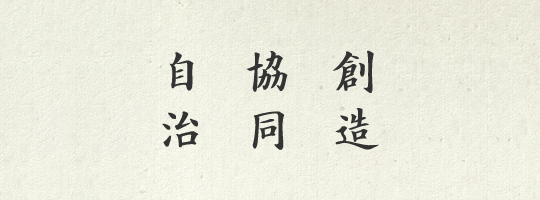 創造
協同
自治